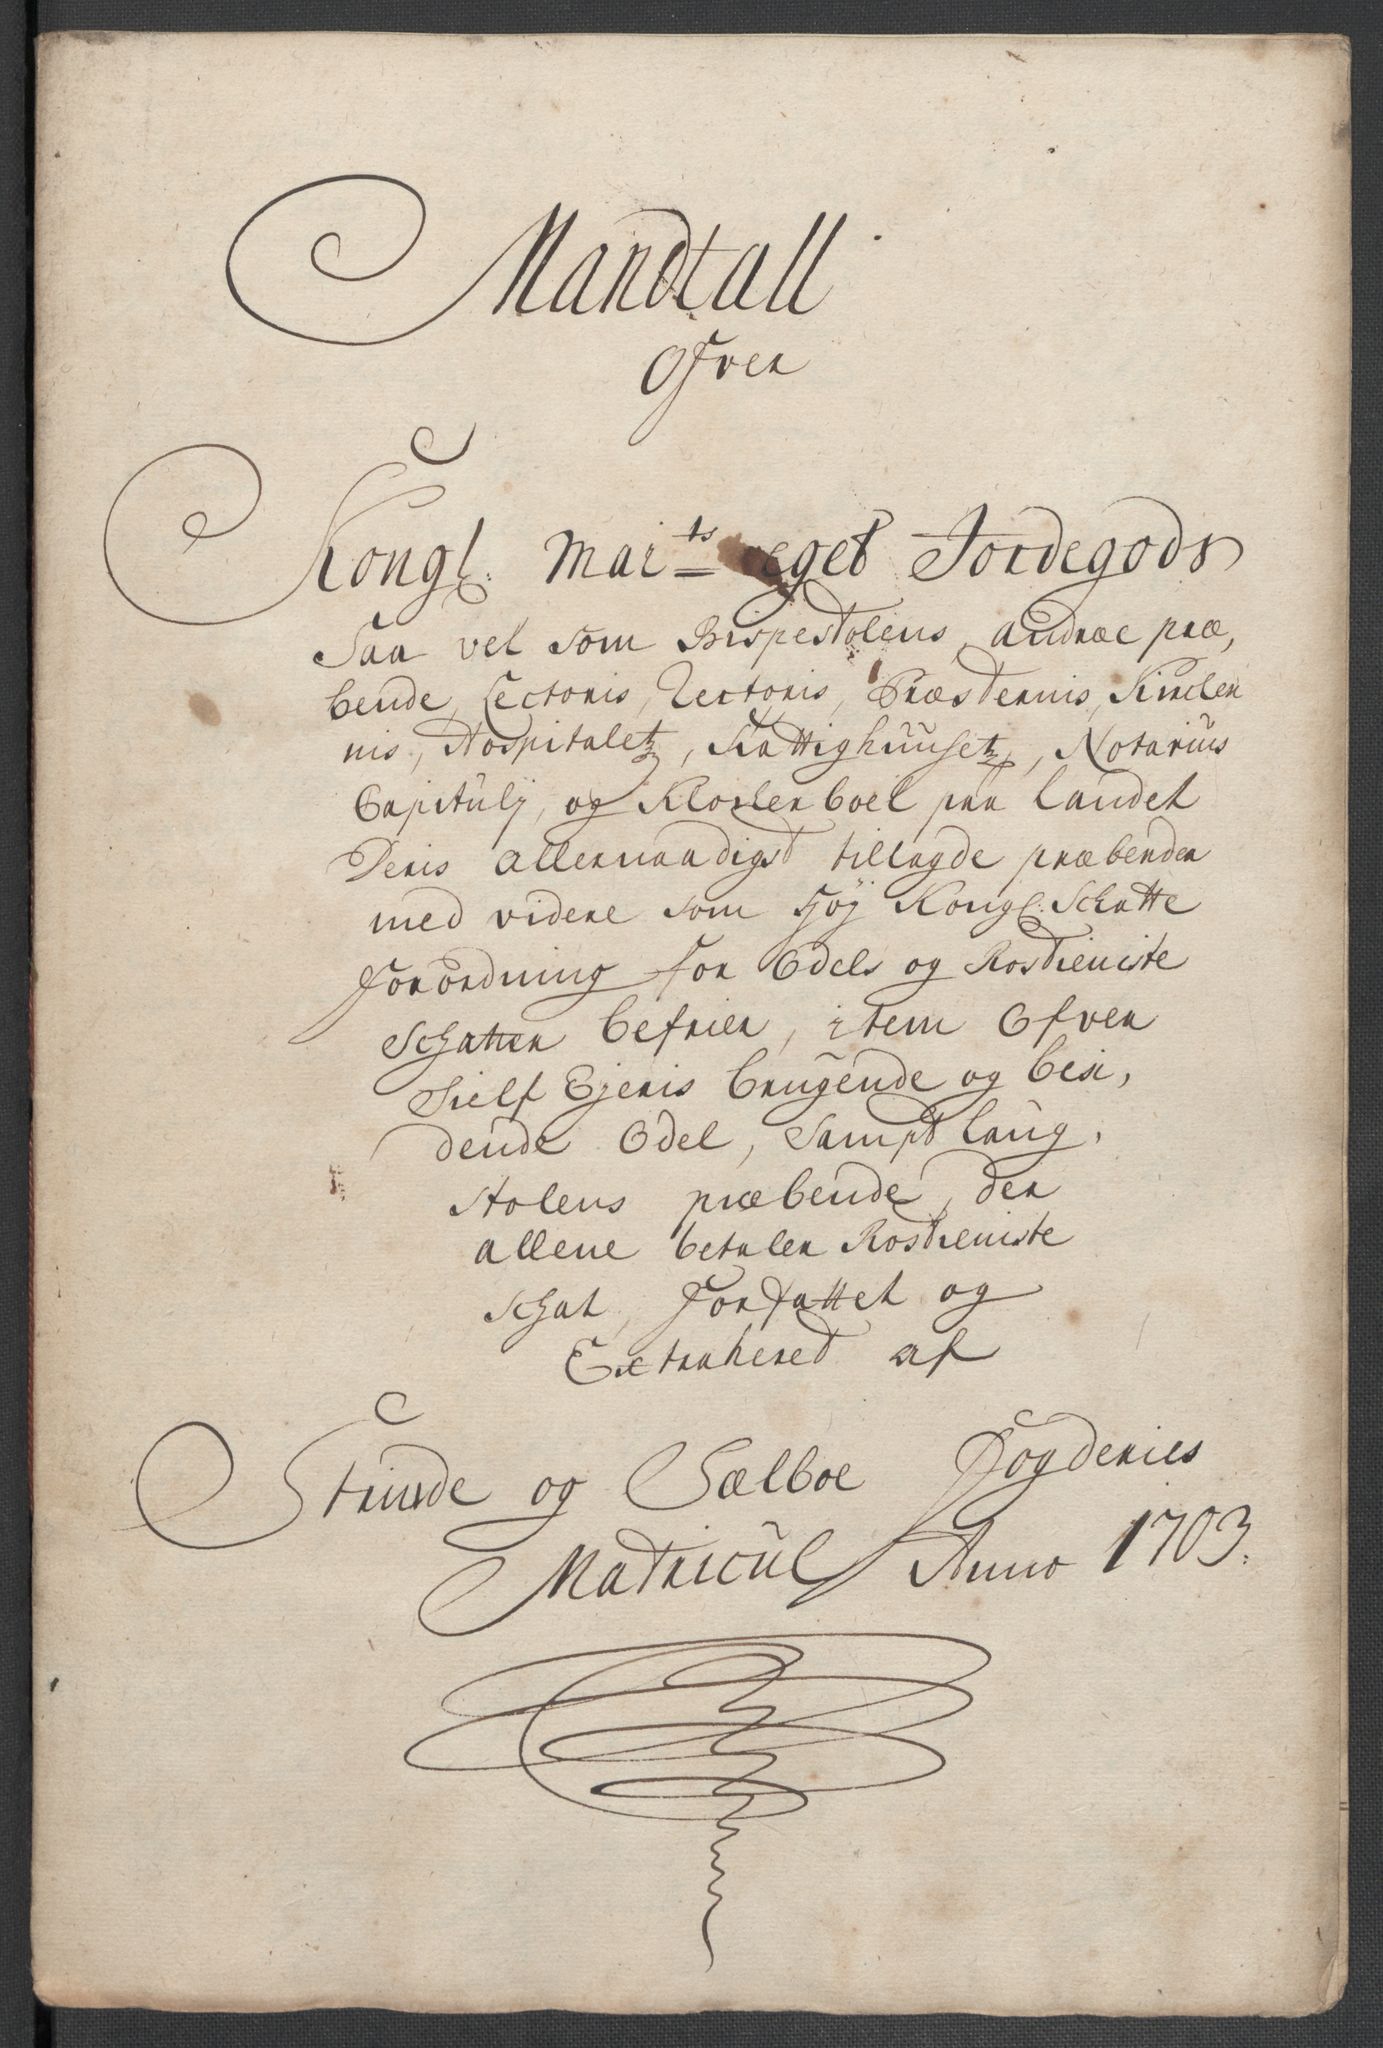 Mandtall
Ofver
Kongl: Mai:ts eget Jordegods
Saa vel som Bispestolens, andræ præ,
bende, Lectoris, Rectoris, Præsternis, Kircler
nis, Hospitaletz, Fattighuusetz, Notarius
Capituly, og Klosterboel paa landet
Deris allernaadigst tillagde præbender
med videre som høj Kongl: Schatte
forordning for Odels og Rostieniste
Schatter befrier, item Ofver
Sielf Ejeris brugende og besi,
dende Odel, sampt laug,
stolens præbende, der
allene betaler Rostieniste
schat, forfattet og
Extrahered af
Strinde og Sælboe Fogderies
Matricul Anno 1703.